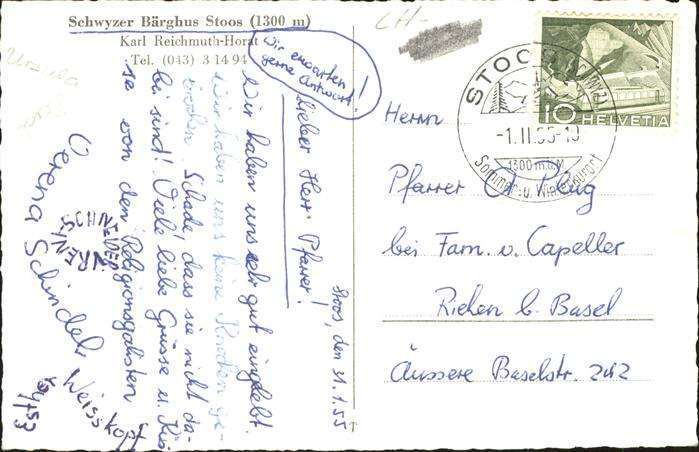 Schwyzer Bärghus Stoos (1300 m)
Karl Reichmuth-Horat
Tel. (043) 3 14 94
Wir erwarten
gerne Antwort!
Stoos, den 31.1.55
Lieber Herr Pfarrer!
Wir haben uns sehr gut eingelebt.
Wir haben uns keine Knochen ge-
brochen. Schade, dass sie nicht da-
bei sind! Viele liebe Grüsse u.
se von den Religionsgalisten
Verena Schindel
SCHNEIDER
Weisskopf
CH-
STOOS (SCHWYZ)
-1.II.55-10
1300 m.ü.M
Sommer- u. Winterkurort
10 HELVETIA
Herrn
Pfarrer O. Pflug
bei Fam. v. Capeller
Riehen b. Basel
Äussere Baselstr. 242